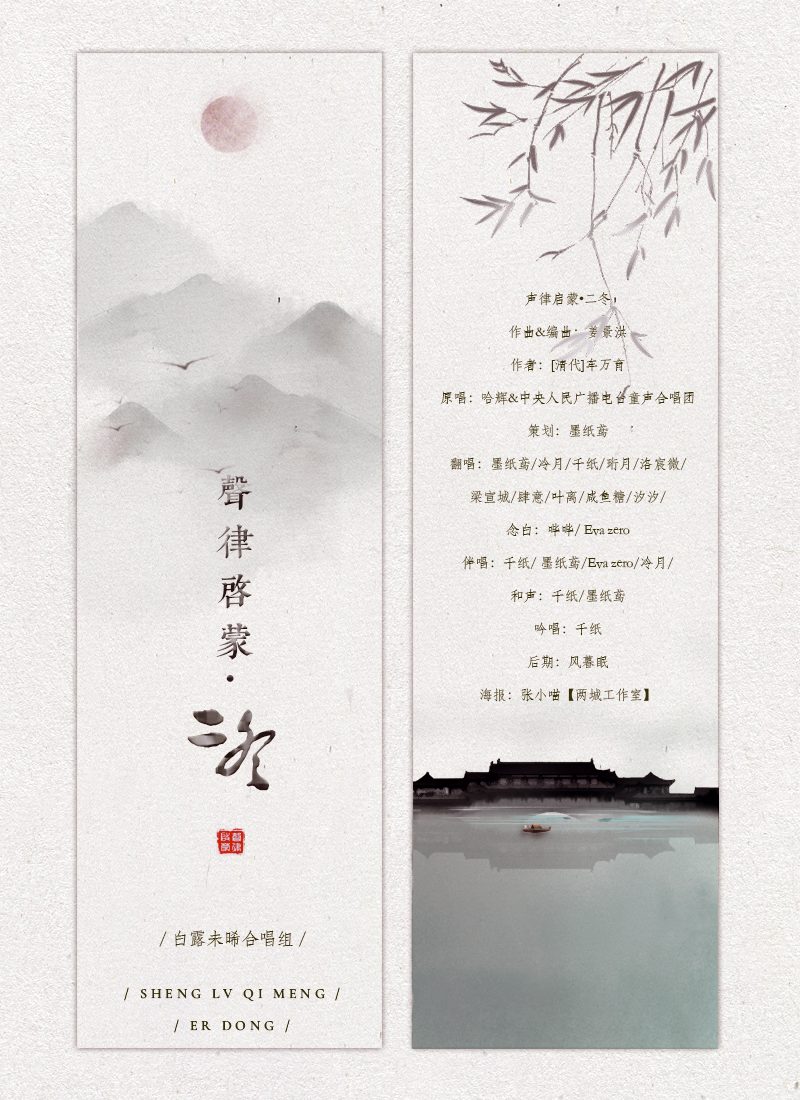 聲律啓蒙·二冬
聲律啟蒙
/ 白露未晞合唱组 /
/ SHENG LV QI MENG /
/ ER DONG /
声律启蒙•二冬
作曲&编曲：姜景洪
作者：[清代]车万育
原唱：哈辉&中央人民广播电台童声合唱团
策划：墨纸鸢
翻唱：墨纸鸢/冷月/千纸/珩月/洛宸微/
梁宣城/肆意/叶离/咸鱼糖/汐汐/
念白：哗哗/ Eva zero
伴唱：千纸/ 墨纸鸢/Eva zero/冷月/
和声：千纸/墨纸鸢
吟唱：千纸
后期：风暮眠
海报：张小喵【两城工作室】